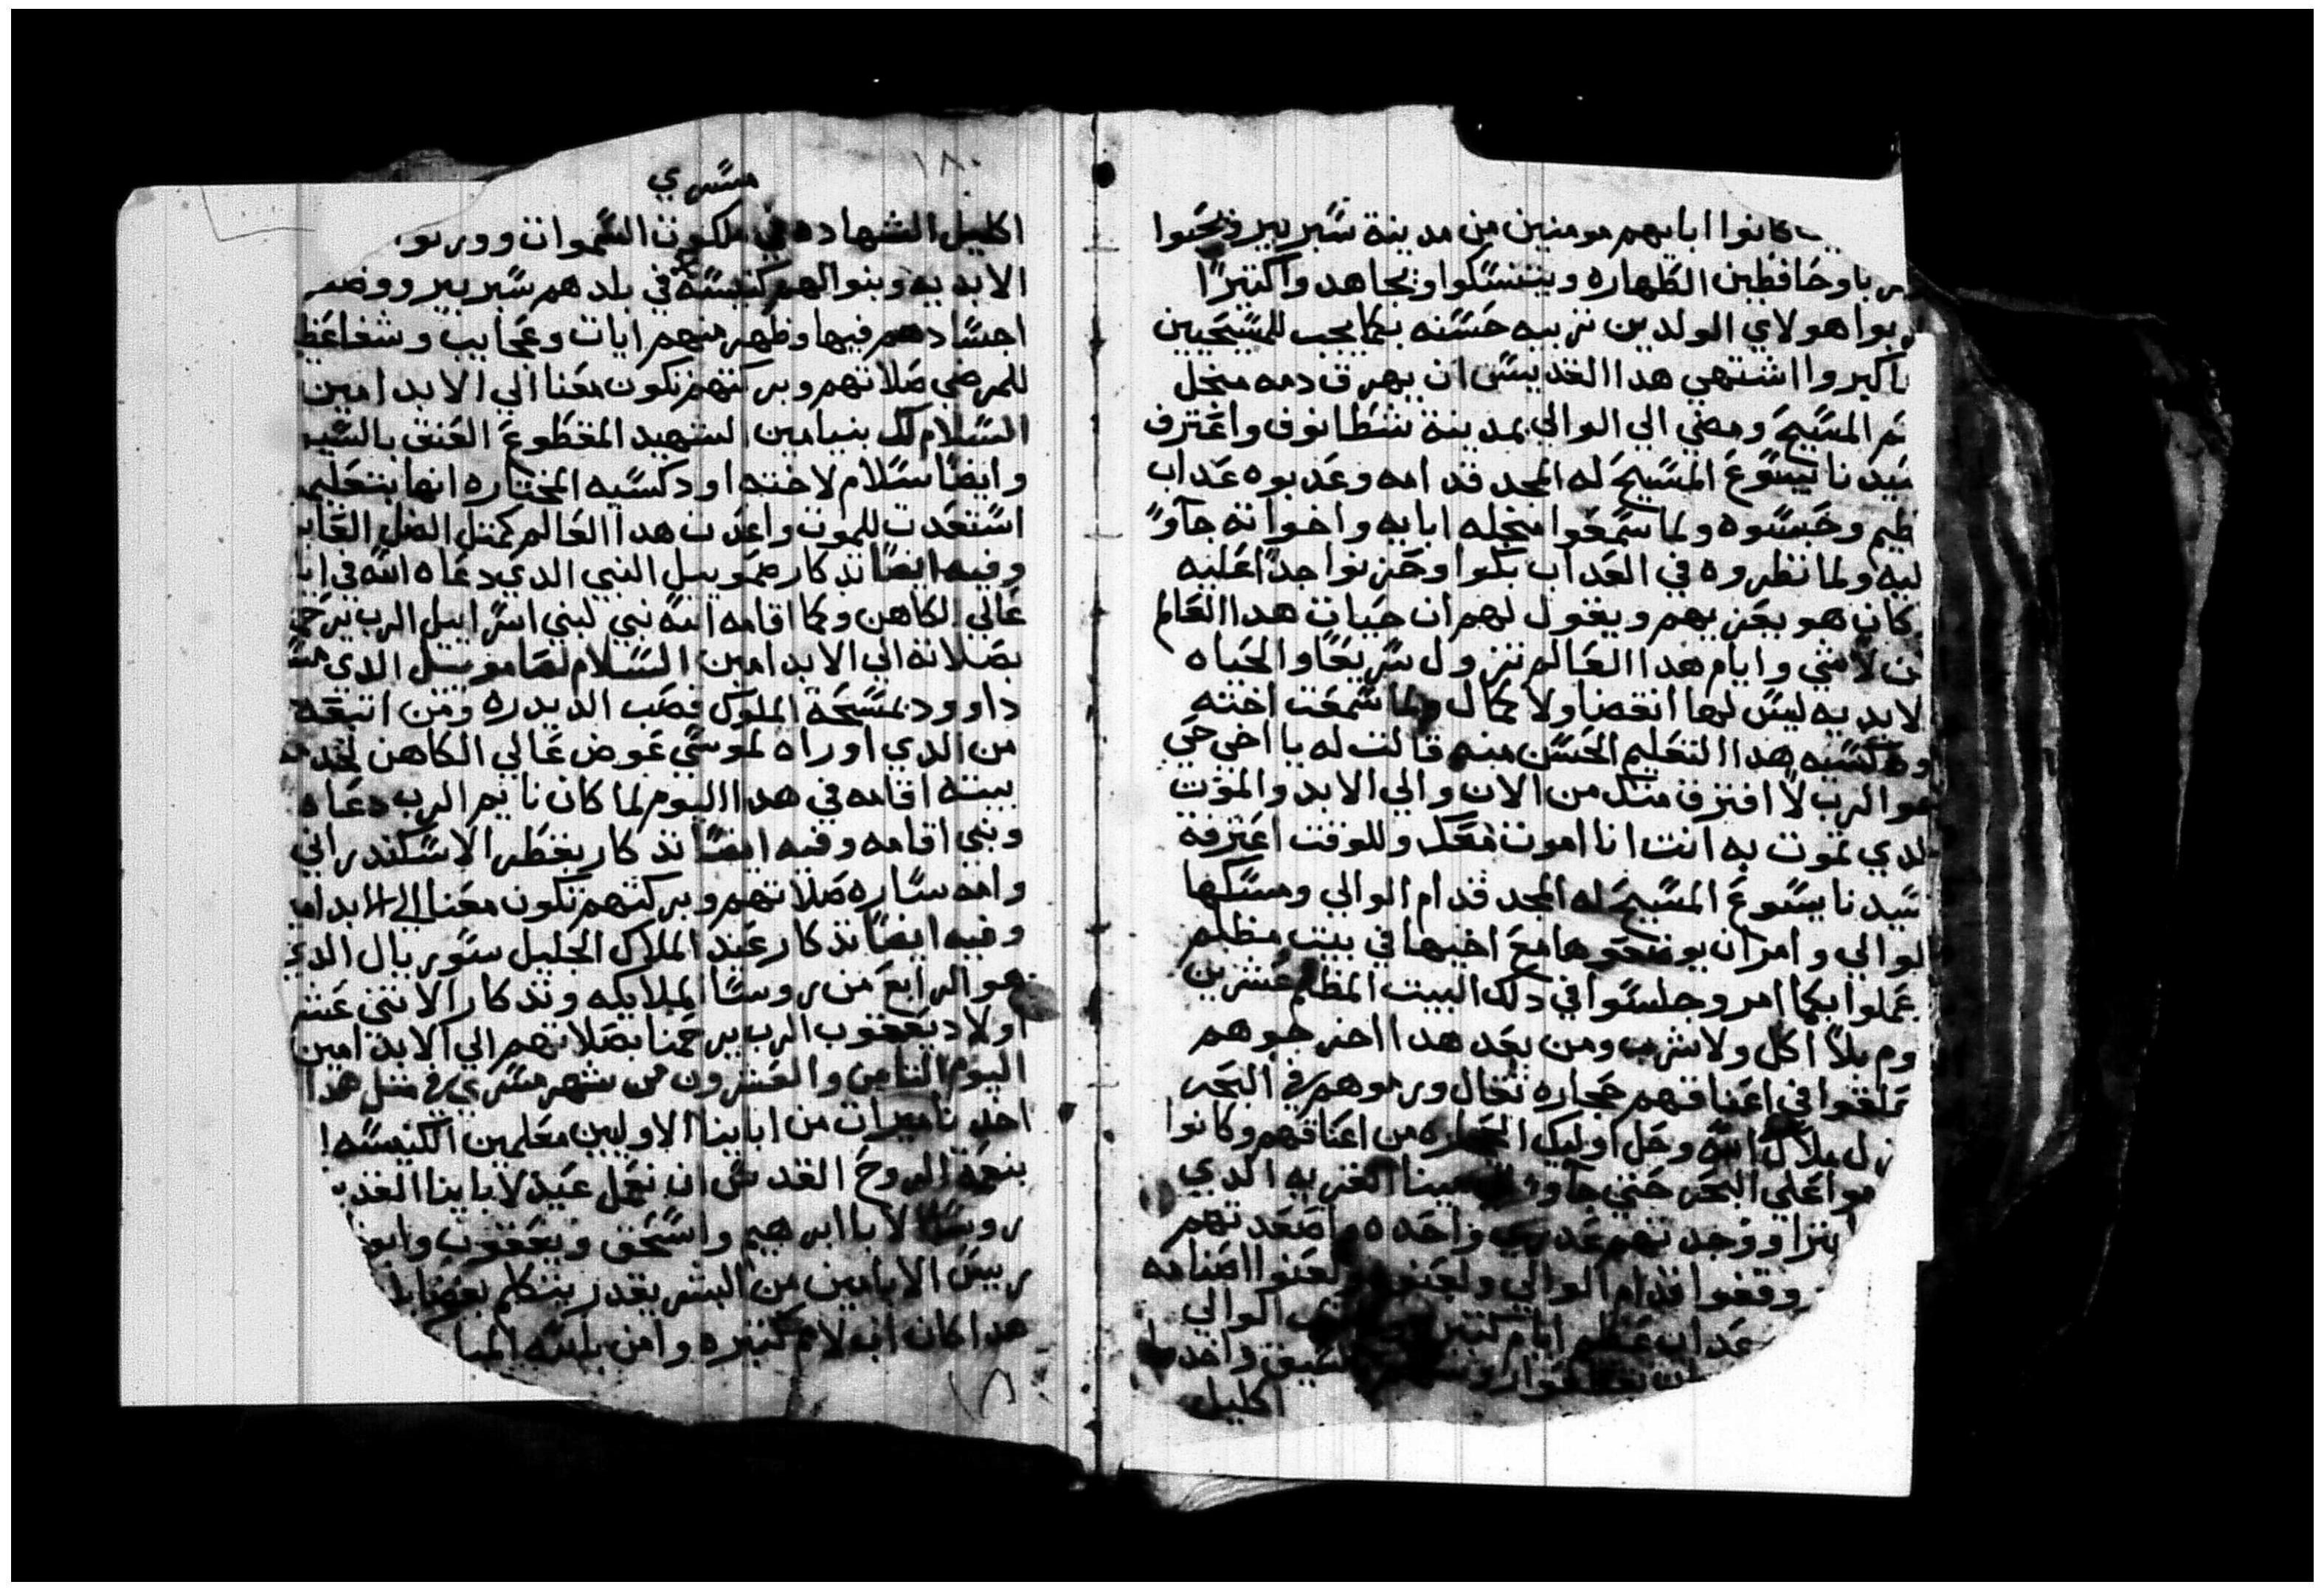 كانوا ابايهم مومنين من مدينة شبربير ويحبوا
وحافظين الطهاره ويتنسكوا ويجاهدوا كتيرًا
بوا هولاي الولدين تربيه حسنه بكما يجب للمسيحيين
اكبروا اشتهي هدا القديس ان يهرق دمه منجل
المسيح ومضي الي الوالي بمدينة شطانوف واعترف
سيدنا يسوع المسيح له المجد قدامه وعدبوه عداب
ظيم وحبسوه ولما سمعوا منجله ابايه واخواته جاوا
ليه ولما نظروه في العداب بكوا وحزنوا جدا عليه
كان هو يعزيهم ويقول لهم ان حيات هدا العالم
لاشي وايام هدا العالم تزول سريعا والحياه
لابديه ليس لها انقضا ولا كمال ولما سمعت اخته
ودكسيه هدا التعليم الحسن منه قالت له يا اخي حي
هو الرب لا افترق منك من الان والي الابد والموت
لدي تموت به انت انا اموت معك وللوقت اعترفة
سيدنا يسوع المسيح له المجد قدام الوالي ومسكها
لوالي وامر ان يوضعوها مع اخيها في بيت مظلم
عملوا بكما امر وجلسوا في دلك البيت المظلم عشرين
وم بلا اكل ولا شرب ومن بعد هدا اخرجوهم
علقوا في اعناقهم حجاره تقال ورموهم في البحر
زل ملاك الله وحل اوليك الحجاره من اعناقهم وكانوا
موا علي البحر حتي جاوا القريه الدي
ووجدتهم عدري واحده واصعدتهم
وقفوا قدام الوالي ولعنوه ولعنوا اصنامه
عداب عظيم ايام كتير الوالي
السيف واخدوا
اكليل
١٨٠
مسري
اكليل الشهاده في ملكوت السموات وورتوا
الابديه وبنوا لهم كنيسه في بلدهم شبربير ووضعو
اجسادهم فيها وظهر منهم ايات وعجايب وشفا عظ
للمرضي صلاتهم وبركتهم تكون معنا الي الابد امين
السلام لك بنيامين الشهيد المقطوع العنق بالسيـ
وايضا سلام لاخته اودكسيه المختاره انها بتعليم
استعدت للموت واعدت هدا العالم كمتل الظل العا
وفيه ايضا تدكار صمويل النبي الدي دعاه الله في ايا
عالي الكاهن وكما اقامه الله نبي لبني اسراييل الرب يرحـ
بصلاته الي الابد امين السلام لصامويل الدي
داوود بمسحة الملوك
من الدي اوراه لموسي عوض عالي الكاهن لخدمـ
بيته اقامه في هدا اليوم لما كان نايم الرب دعاه
ونبي اقامه وفيه ايضا تدكار بغطر الاسكندراني
وامه ساره صلاتهم وبركتهم تكون معنا الي الابد
وفيه ايضا تدكار عيد الملاك الجليل سوريال الدي
هو الرابع من روسا الملايكه وتدكار الاتني عشر
اولاد يعقوب الرب يرحمنا بصلاتهم الي الابد امين
اليوم التامن والعشرون من شهر مسري في متل هدا
اخدنا ميرات من اباينا الاوليين معلمين الكنيسه
بنعمة الروح القدس ان نعمل عيد لاباينا القد
روسا الابا ابرهيم واسحق ويعقوب
ريس الابا من من البشر يقدر يتكلم بفضايل
هدا كان اب لامم كتيره وامن بالله